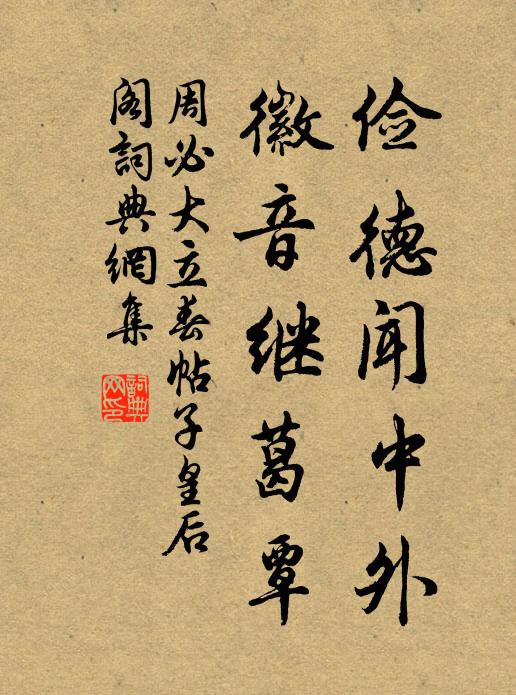 俭德闻中外
徽音继葛覃
周必大立春帖子皇后
阁词典网集
詞典网印